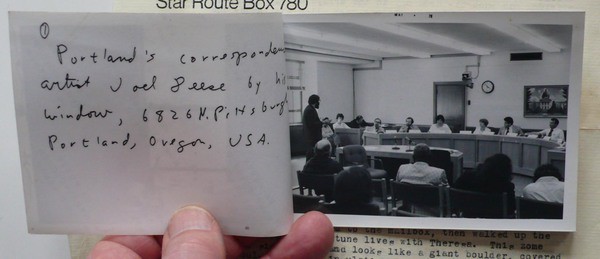 Star Route Box 780
①
Portland's corresponden
artist Joel Seese by hi
window, 6826 N. Pittsburgh
Portland, Oregon, USA.
to the mailbox, then walked up the
tune lives with Theresa. This some
nd looks like a giant boulder, covered